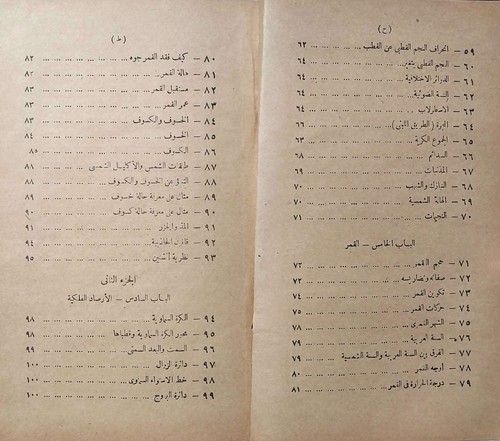 (ح)
٥٩ — انحراف النجم القطبي عن القطب ... ... ... ... ... ٦٢
٦٠ — النجم القطبي يتغير ... ... ... ... ... ٦٤
٦١ — الدوائر الاختلافية ... ... ... ... ... ٦٤
٦٢ — السنة الضوئية ... ... ... ... ... ٦٤
٦٣ — الاصطرلاب ... ... ... ... ... ٦٤
٦٤ — المجرة (الطريق اللبني) ... ... ... ... ... ٦٤
٦٥ — الجموع الكرية ... ... ... ... ... ٦٥
٦٦ — السدائم ... ... ... ... ... ٦٦
٦٧ — المذنبات ... ... ... ... ... ٦٩
٦٨ — النيازك والشهب ... ... ... ... ... ٧٠
٦٩ — الهالة الشمسية ... ... ... ... ... ٧٠
٧٠ — النجيمات ... ... ... ... ... ٧١
الباب الخامس — القمر
٧١ — حجم القمر ... ... ... ... ... ٧٢
٧٢ — صفاته وتضاريسه ... ... ... ... ... ٧٢
٧٣ — تكوين القمر ... ... ... ... ... ٧٤
٧٤ — حركات القمر ... ... ... ... ... ٧٥
٧٥ — الشهر القمري ... ... ... ... ... ٧٨
٧٦ — السنة العربية ... ... ... ... ... ٧٩
٧٧ — الفرق بين السنة العربية والسنة الشمسية ... ... ٧٩
٧٨ — أوجه القمر ... ... ... ... ... ٨٠
٧٩ — درجة الحرارة في القمر ... ... ... ... ... ٨١
(ط)
٨٠ — كيف فقد القمر جوه ... ... ... ... ... ٨٢
٨١ — هالة القمر ... ... ... ... ... ٨٢
٨٢ — مستقبل القمر ... ... ... ... ... ٨٣
٨٣ — عمر القمر ... ... ... ... ... ٨٣
٨٤ — الخسوف والكسوف ... ... ... ... ... ٨٣
٨٥ — الخسوف ... ... ... ... ... ٨٤
٨٦ — الكسوف ... ... ... ... ... ٨٥
٨٧ — طبقات الشمس والأكاليل الشمسى ... ... ... ٨٨
٨٨ — التنبؤ عن الخسوف والكسوف ... ... ... ٨٨
٨٩ — مثال على معرفة حالة خسوف ... ... ... ٨٩
٩٠ — مثال على معرفة حالة كسوف ... ... ... ٩٠
٩١ — المد والجزر ... ... ... ... ... ٩١
٩٢ — قانون الجاذبية ... ... ... ... ... ٩٤
٩٣ — نظرية أينشتين ... ... ... ... ... ٩٥
الجزء الثاني
الباب السادس — الأرصاد الفلكية
٩٤ — الكرة السماوية ... ... ... ... ... ٩٨
٩٥ — محور الكرة السماوية وقطباها ... ... ... ٩٨
٩٦ — السمت والبعد السمتى ... ... ... ... ٩٩
٩٧ — دائرة الزوال ... ... ... ... ... ١٠٠
٩٨ — خط الاستواء السماوى ... ... ... ... ١٠٠
٩٩ — دائرة البروج ... ... ... ... ... ١٠٠